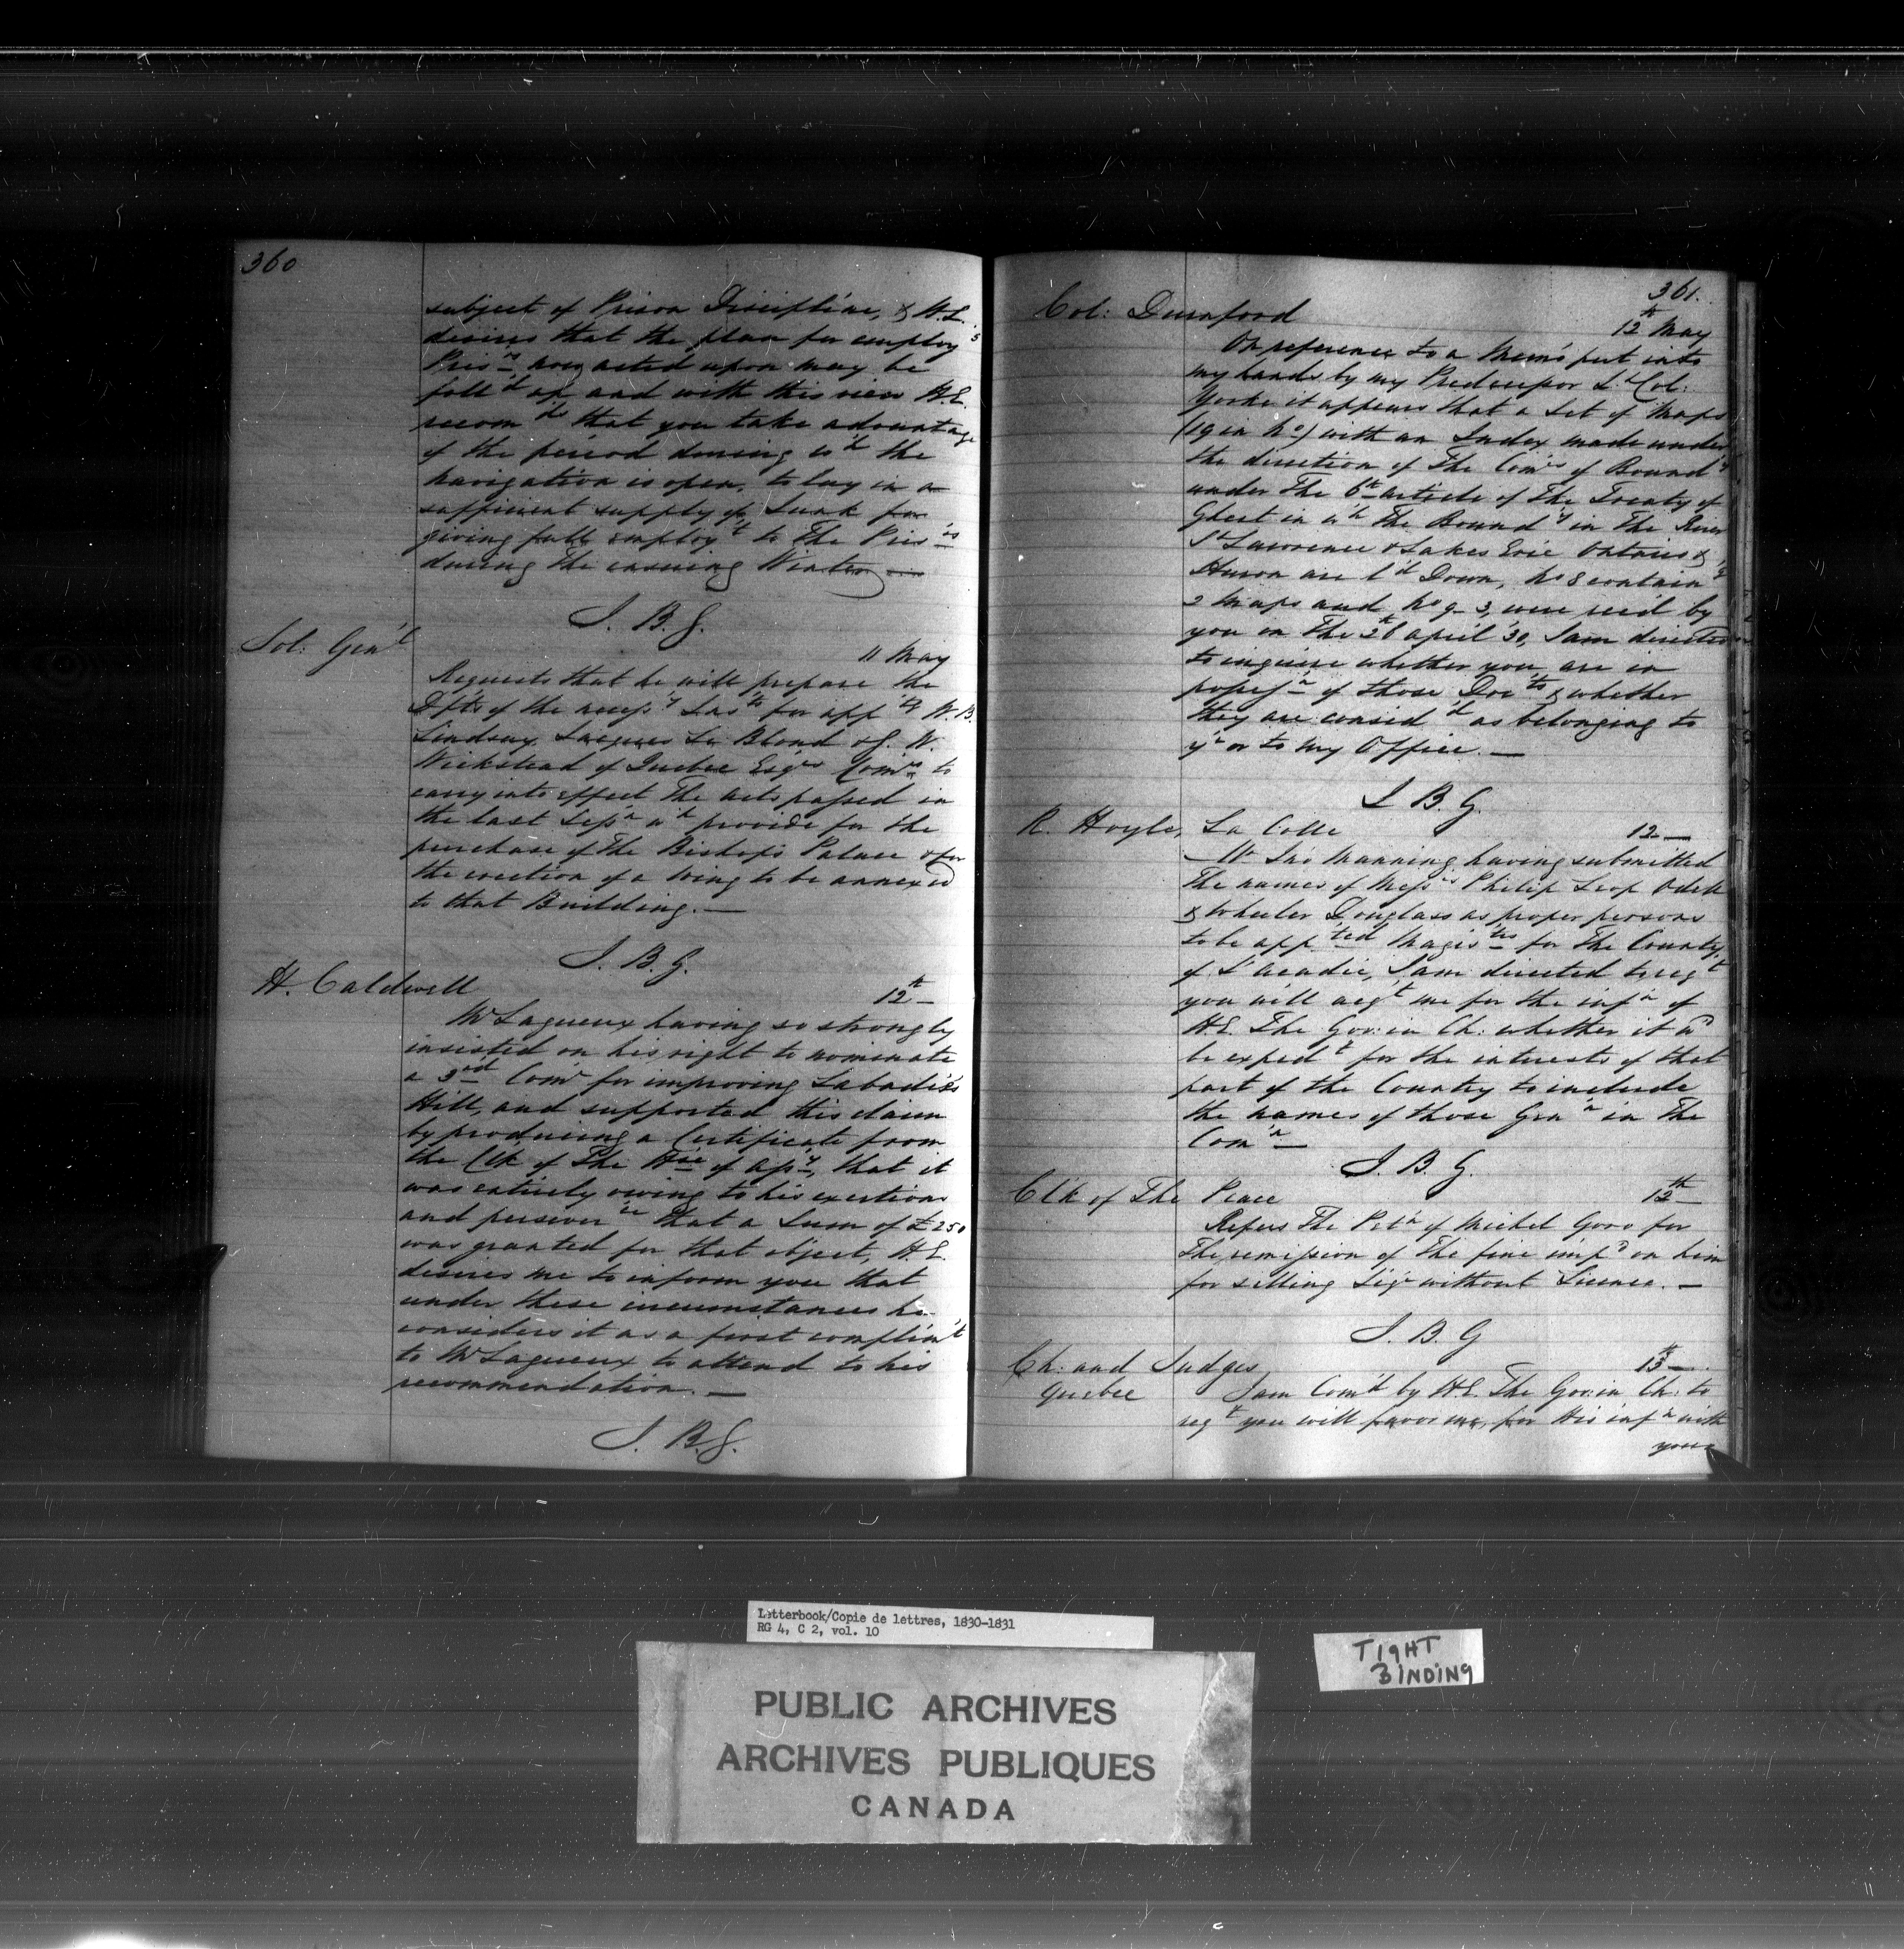 360
subject of Prison Discipline, & H.E.
desires that the plan for employ'g
Pris'rs now acted upon may be
foll'd up and with this view H.E.
recom'ds that you take advantage
of the period during w'h the
navigation is open, to lay in a
sufficient supply of Junk for
giving full employ't to The Pris'rs
during The ensuing Winter —
J. B. G.
Sol: Gen'l
11 May
Requests that he will prepare the
Dfts of the necess'y Ins'ts for app'tg W. B.
Lindsay Jacques Le Blond & G. W.
Wickstead of Quebec Esq'rs Com'rs to
carry into effect The acts passed in
the last Sess'n w'h provide for the
purchase of The Bishop's Palace & for
the erection of a wing to be annexed
to that Building. —
J. B. G.
H. Caldwell
12th —
Mr Lagueux having so strongly
insisted on his right to nominate
a 3rd Com'r for improving Labadie's
Hill, and supported this claim
by producing a Certificate from
the Clk of The H'se of Ass'y, that it
was entirely owing to his exertions
and persever'ce that a Sum of £250
was granted for that object, H.E.
desires me to inform you that
under these circumstances he
considers it as a first complim't
to Mr Lagueux to attend to his
recommendation. —
J. B. G.
361.
Col: Durnford
12th May
On reference to a Mem'o put into
my hands by my Predecessor Lt Col:
Yorke it appears that a Set of Maps
(19 in No) with an Index made under
the direction of The Com'rs of Bound'y
under The 6th article of The Treaty of
Ghent in w'h The Bound'y in The River
St Lawrence & Lakes Erie Ontario &
Huron are l'd Down, No 8 contain'g
2 Maps and No 9 - 3, were rec'd by
you on The 26th april '30, I am directed
to inquire whether you are in
posses'n of those Doc'ts & whether
they are consid'd as belonging to
y'r or to my Office. —
J. B. G.
R. Hoyle, La Colle
12 —
Mr Jno Manning having submitted
The names of Mess'rs Philip Odell
& Wheeler Douglass as proper persons
to be app'ted Magis'tes for The County
of L'acadie, I am directed to req't
you will acq't me for the inf'n of
H.E. The Gov: in Ch: whether it w'd
be exped't for the interests of that
part of the Country to include
the names of those Gen'n in The
Com'n —
J. B. G.
Cl'k of The Peace
12th
Refers The Pet'n of Michel for
The remission of The fine imp'd on him
for selling Liq'r without Licence. —
J. B. G
Ch: and Judges
13th —
Quebec
I am Com'd by H.E. The Gov: in Ch: to
req't you will favor me, for His inf'n with
your
Letterbook/Copie de lettres, 1830-1831
RG 4, C 2, vol. 10
TIGHT
BINDING
PUBLIC ARCHIVES
ARCHIVES PUBLIQUES
CANADA